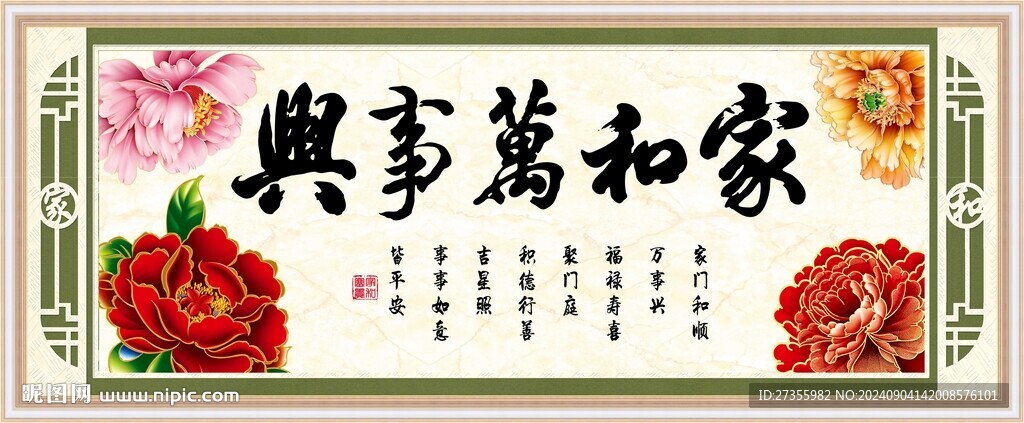 家和萬事興
家门和顺
万事兴
福禄寿喜
聚门庭
积德行善
吉星照
事事如意
皆平安
家
和
昵图网 www.nipic.com
ID:27355982 NO:20240904142008576101